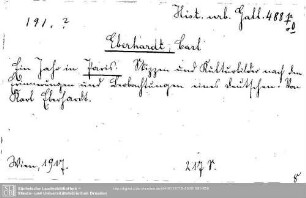 Hist. urb. Gall. 488
191. ?
Eberhardt, Carl
Ein Jahr in Paris. Skizzen und Kulturbilder nach den
Erinnerungen und Beobachtungen eines Deutschen. Von
Karl Eberhardt.
Wien, 1917.
217 S.
8°
Sächsische Landesbibliothek -
Staats- und Universitätsbibliothek Dresden